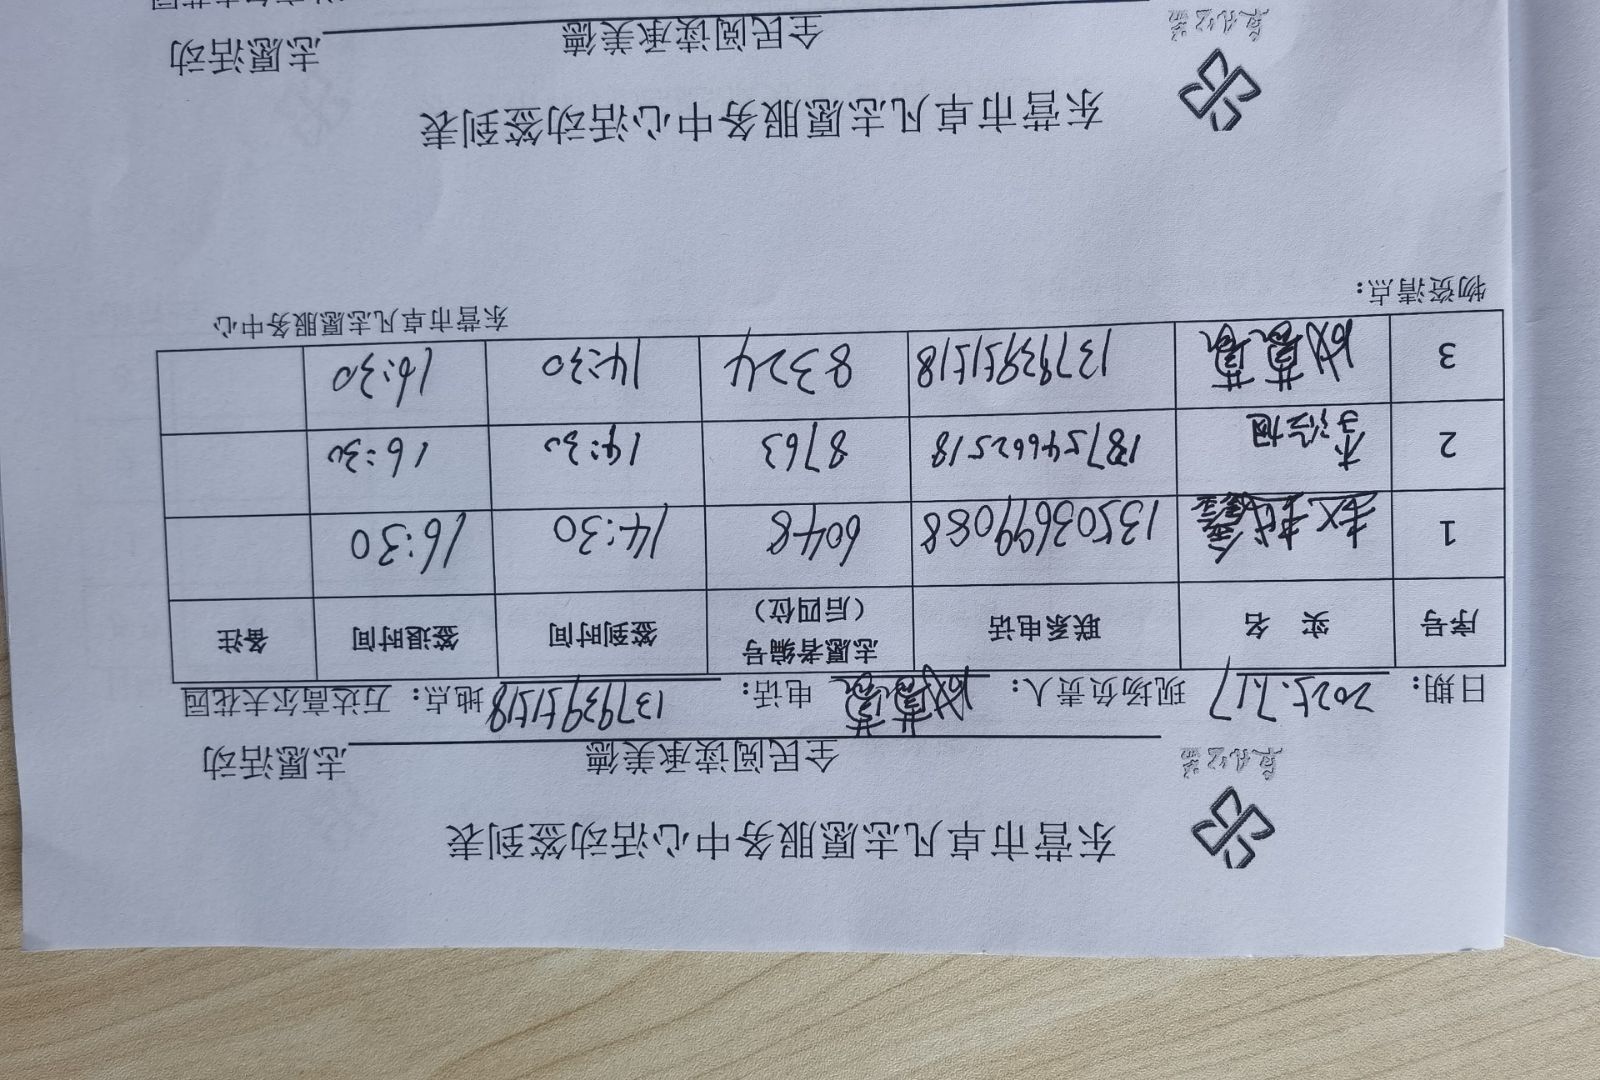 东营市卓凡志愿服务中心活动签到表
全民阅读承美德 志愿活动
日期：2025.7.17 现场负责人： 电话：13793951518 地点：万达高尔夫花园
序号 实 名 联系电话 志愿者编号（后四位） 签到时间 签退时间 备注
1 赵越鑫 13503699088 6048 14:30 16:30
2 18754662518 8763 14:30 16:30
3 13793951518 8324 14:30 16:30
物资清点：
东营市卓凡志愿服务中心
东营市卓凡志愿服务中心活动签到表
全民阅读承美德 志愿活动